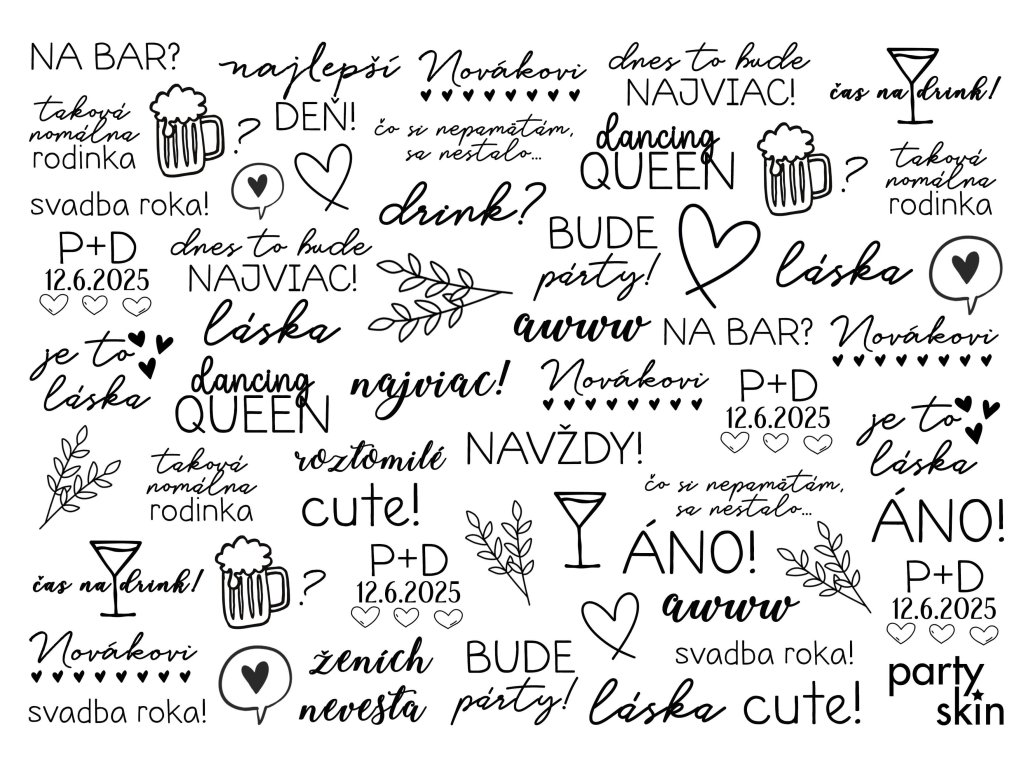 NA BAR?
najlepší
DEŇ!
Novákovi
dnes to bude
NAJVIAC!
čas na drink!
taková
nomálna
rodinka
?
čo si nepamätám,
sa nestalo...
dancing
QUEEN
?
taková
nomálna
rodinka
svadba roka!
drink?
BUDE
párty!
láska
P+D
12.6.2025
dnes to bude
NAJVIAC!
láska
awww
NA BAR?
Novákovi
je to
láska
dancing
QUEEN
najviac!
Novákovi
P+D
12.6.2025
je to
láska
taková
nomálna
rodinka
roztomilé
cute!
NAVŽDY!
čo si nepamätám,
sa nestalo...
ÁNO!
ÁNO!
čas na drink!
?
P+D
12.6.2025
awww
P+D
12.6.2025
Novákovi
svadba roka!
ženích
nevesta
BUDE
párty!
láska
svadba roka!
cute!
party
skin